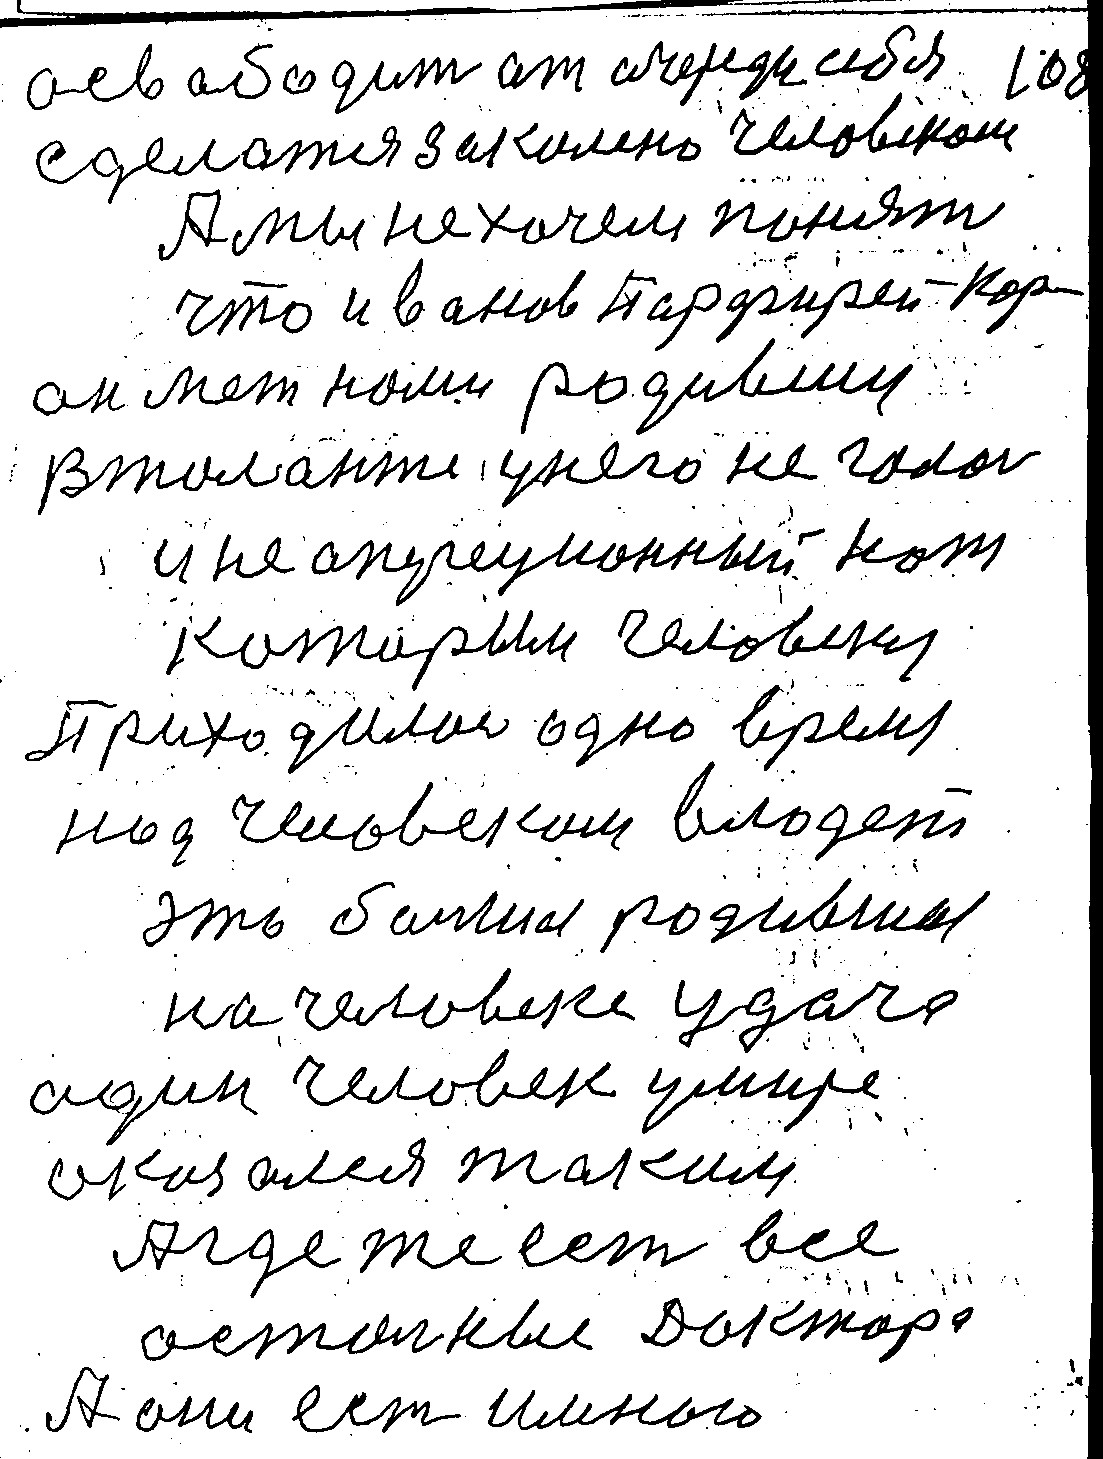 асвабодит ат очереди себя 108
сделатся законено человеком
А мы не хочем понят
что иванов Парфирей Кор-
он мет номи родивши
в толанте у него не голов
и не апереционный нот
каторым человеку
Приходилос одно время
над человеком владет
это балшиа родившиа
на человеке удача
адин человек умире
оказался таким
А где же ест все
асталные Доктора
А они ест и много